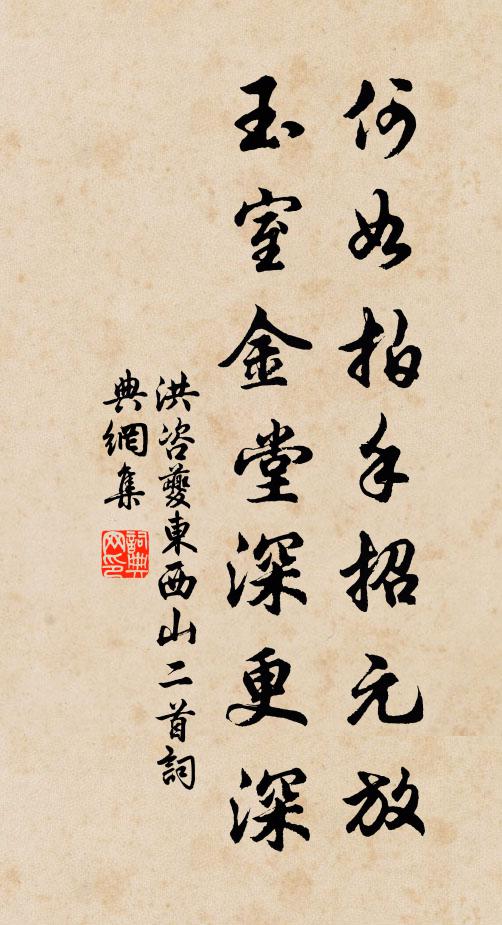 何如拍手招元放
玉室金堂深更深
洪咨夔東西山二首詞
典網集
詞典
网印